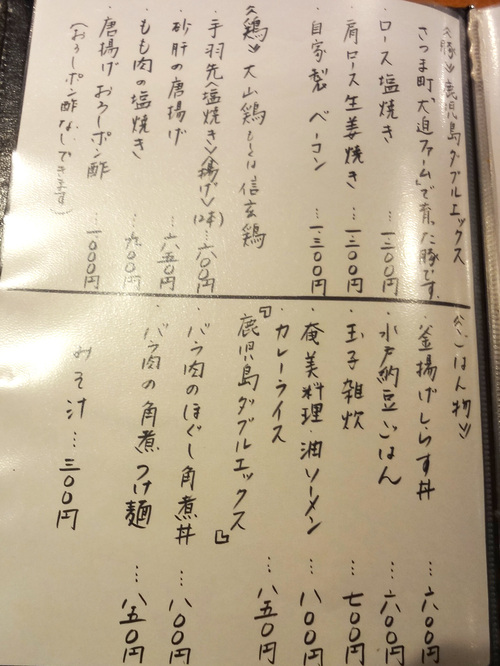 ≪豚≫鹿児島ダブルエックス
さつま町「大迫ファーム」で育った豚です。
・ロース塩焼き …一三〇〇円
・肩ロース生姜焼き …一三〇〇円
・自家製 ベーコン …一三〇〇円
≪鶏≫大山鶏もしくは信玄鶏
・手羽先〈塩焼き〉〈揚げ〉(2本) …六〇〇円
・砂肝の唐揚げ …六五〇円
・もも肉の塩焼き …九〇〇円
・唐揚げおろしポン酢 …一〇〇〇円
(おろしポン酢なしできます)
≪ごはん物≫
・釜揚げしらす丼 …六〇〇円
・水戸納豆ごはん …六〇〇円
・玉子雑炊 …七〇〇円
・奄美料理・油ソーメン …八〇〇円
・カレーライス …八五〇円
『鹿児島ダブルエックス』
・バラ肉のほぐし角煮丼 …八〇〇円
・バラ肉の角煮つけ麺 …八五〇円
みそ汁…三〇〇円